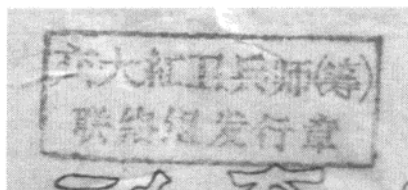 齐大紅卫兵师(筹)
联络组发行章